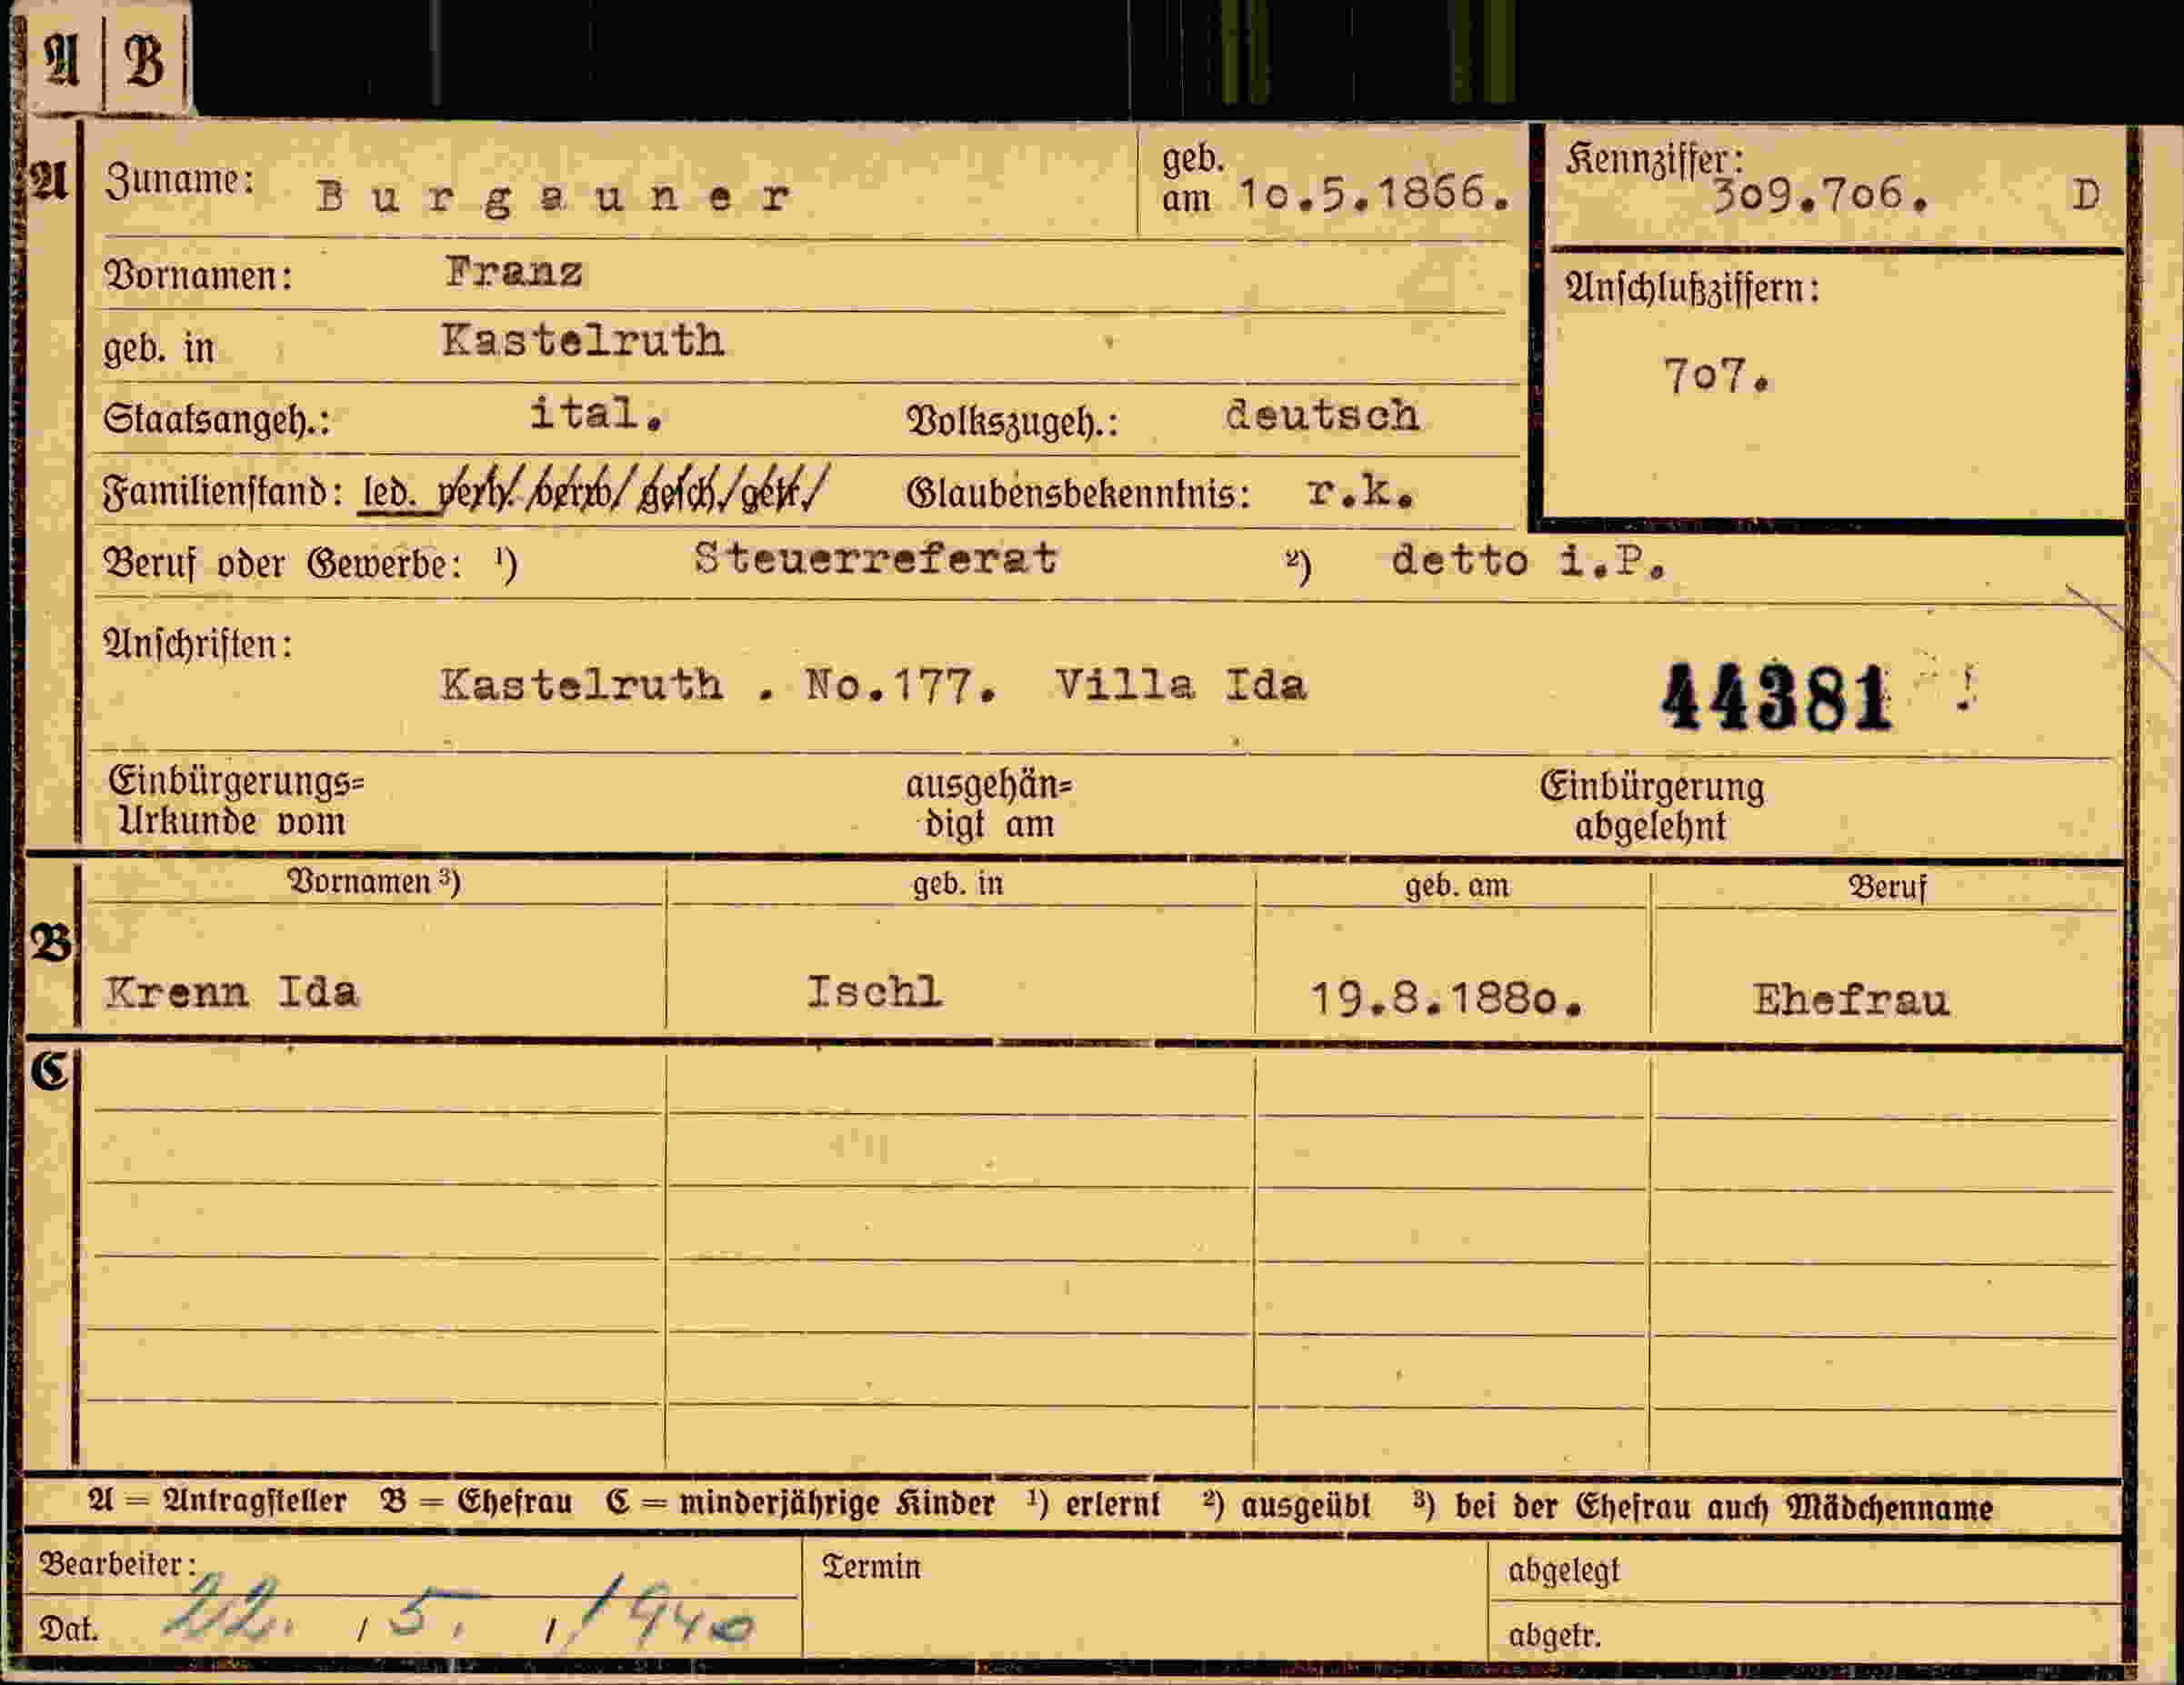 A B
A Zuname: Burgauner geb. am 10.5.1866. Kennziffer: 309.706. D
Vornamen: Franz
geb. in Kastelruth
Anschlußziffern: 707.
Staatsangeh.: ital. Volkszugeh.: deutsch
Familienstand: led. verh./verw./gesch./getr./ Glaubensbekenntnis: r.k.
Beruf oder Gewerbe: ¹) Steuerreferat ²) detto i.P.
Anschriften:
Kastelruth . No.177. Villa Ida 44381
Einbürgerungs= ausgehän= Einbürgerung
Urkunde vom digt am abgelehnt
B Vornamen ³) geb. in geb. am Beruf
Krenn Ida Ischl 19.8.1880. Ehefrau
C
A = Antragsteller B = Ehefrau C = minderjährige Kinder ¹) erlernt ²) ausgeübt ³) bei der Ehefrau auch Mädchenname
Bearbeiter: Termin abgelegt
Dat. 22. / 5. / 1940 abgetr.